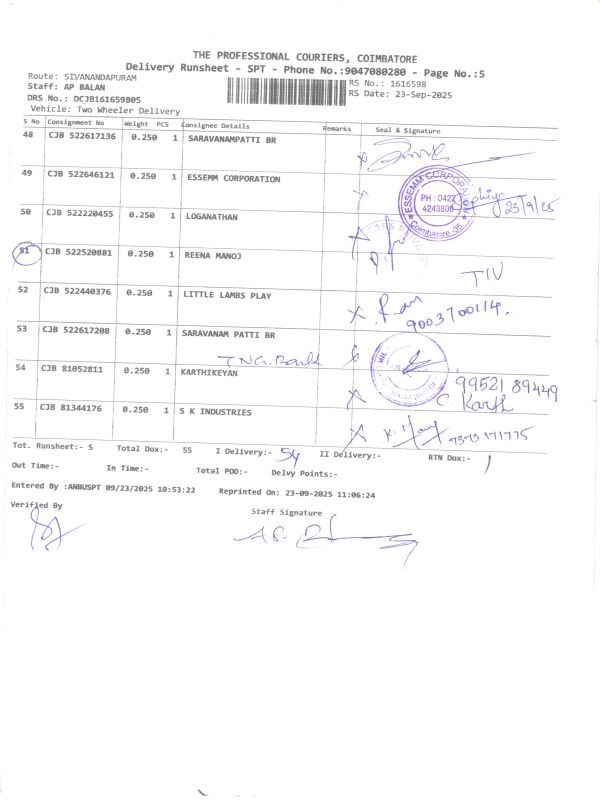 THE PROFESSIONAL COURIERS, COIMBATORE
Delivery Runsheet - SPT - Phone No.:9047080280 - Page No.:5
Route: SIVANANDAPURAM
RS No.: 1616598
Staff: AP BALAN
RS Date: 23-Sep-2025
DRS No.: DCJB161659805
Vehicle: Two Wheeler Delivery
S No Consignment No Weight PCS Consignee Details Remarks Seal & Signature
48 CJB 522617136 0.250 1 SARAVANAMPATTI BR
49 CJB 522646121 0.250 1 ESSEMM CORPORATION
ESSEMM CORPORATION PH : 0422 4243800 Coimbatore-35
23/9/25
50 CJB 522220455 0.250 1 LOGANATHAN
51 CJB 522520881 0.250 1 REENA MANOJ
TIV
52 CJB 522440376 0.250 1 LITTLE LAMBS PLAY
9003700114.
53 CJB 522617208 0.250 1 SARAVANAM PATTI BR
TNG. Bank
54 CJB 81052811 0.250 1 KARTHIKEYAN
99521 89449
C. Karth
55 CJB 81344176 0.250 1 S K INDUSTRIES
7373171775
Tot. Runsheet:- 5 Total Dox:- 55 I Delivery:- 54 II Delivery:- RTN Dox:- 1
Out Time:- In Time:- Total POD:- Delvy Points:-
Entered By :ANBUSPT 09/23/2025 10:53:22 Reprinted On: 23-09-2025 11:06:24
Verified By Staff Signature